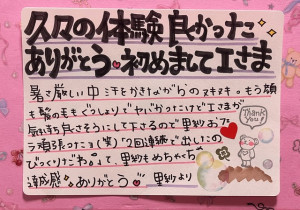 久々の体験良かった
ありがとう♥初めまして工さま
暑さ厳しい中汗をかきながらのヌキヌキ。もう顔
も髪のももぐっしょりでヤバかったけど工さまが
気持ち良さそうにして下さるので里紗おプ
う頑張っつニョ(笑)7回連続で出したの
びっくりだわぁ〜て里紗もめちゃくちゃ
達成感 ありがとう♡ 里紗より
Thank You!